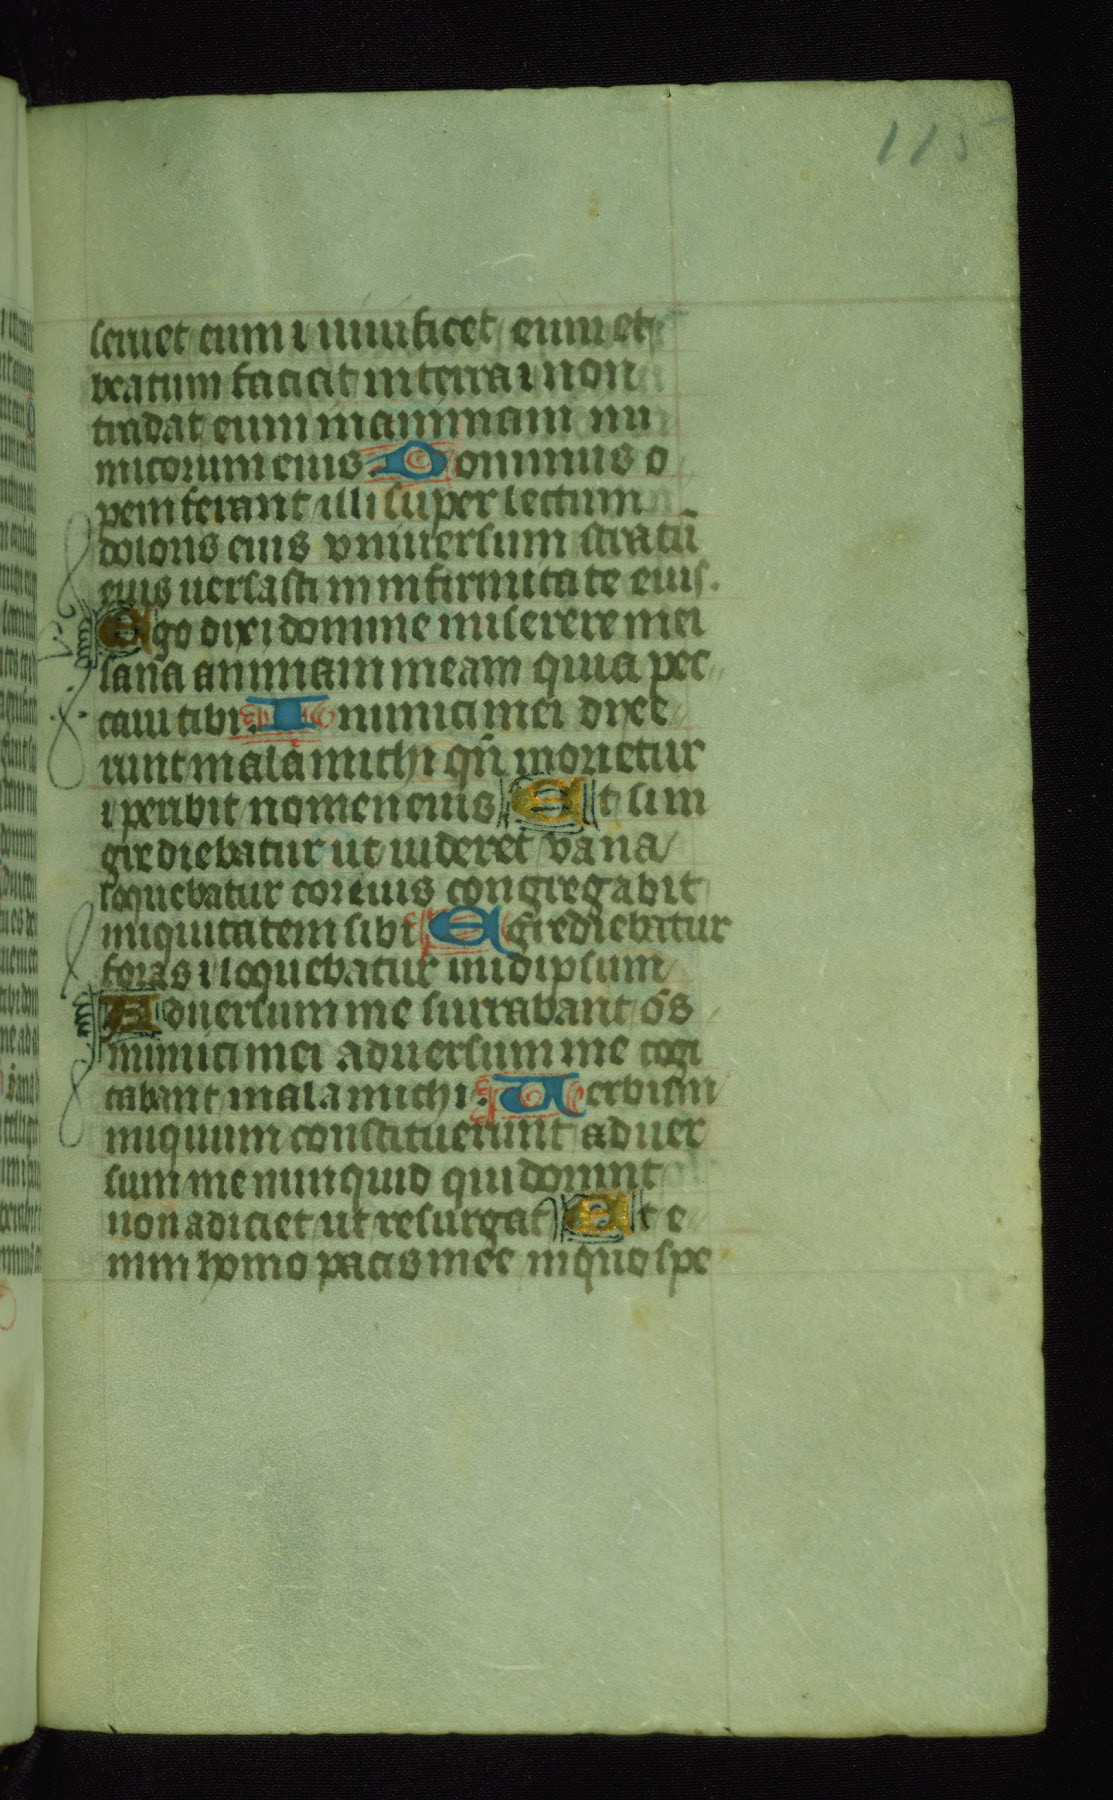 115
seruet eum ⁊ uiuificet eum et
beatum faciat in terra ⁊ non
tradat eum in animam ini
micorum eius. Dominus o
pem ferat illi super lectum
doloris eius vniuersum stratū
eius uersasti in infirmitate eius.
Ego dixi domine miserere mei
sana animam meam quia pec
caui tibi. Inimici mei dixe
runt mala michi qn̄ morietur
⁊ peribit nomen eius Et si in
grediebatur ut uideret vana
loquebatur cor eius congregabit
iniquitatem sibi Egrediebatur
foras ⁊ loquebatur in idipsum
Aduersum me surrabant om̄s
inimici mei aduersum me cogi
tabant mala michi. Uerbum
iniquum constituerunt aduer
sum me nunquid qui dormit
non adiciet ut resurgat Et e
nim homo pacis mee in quo spe